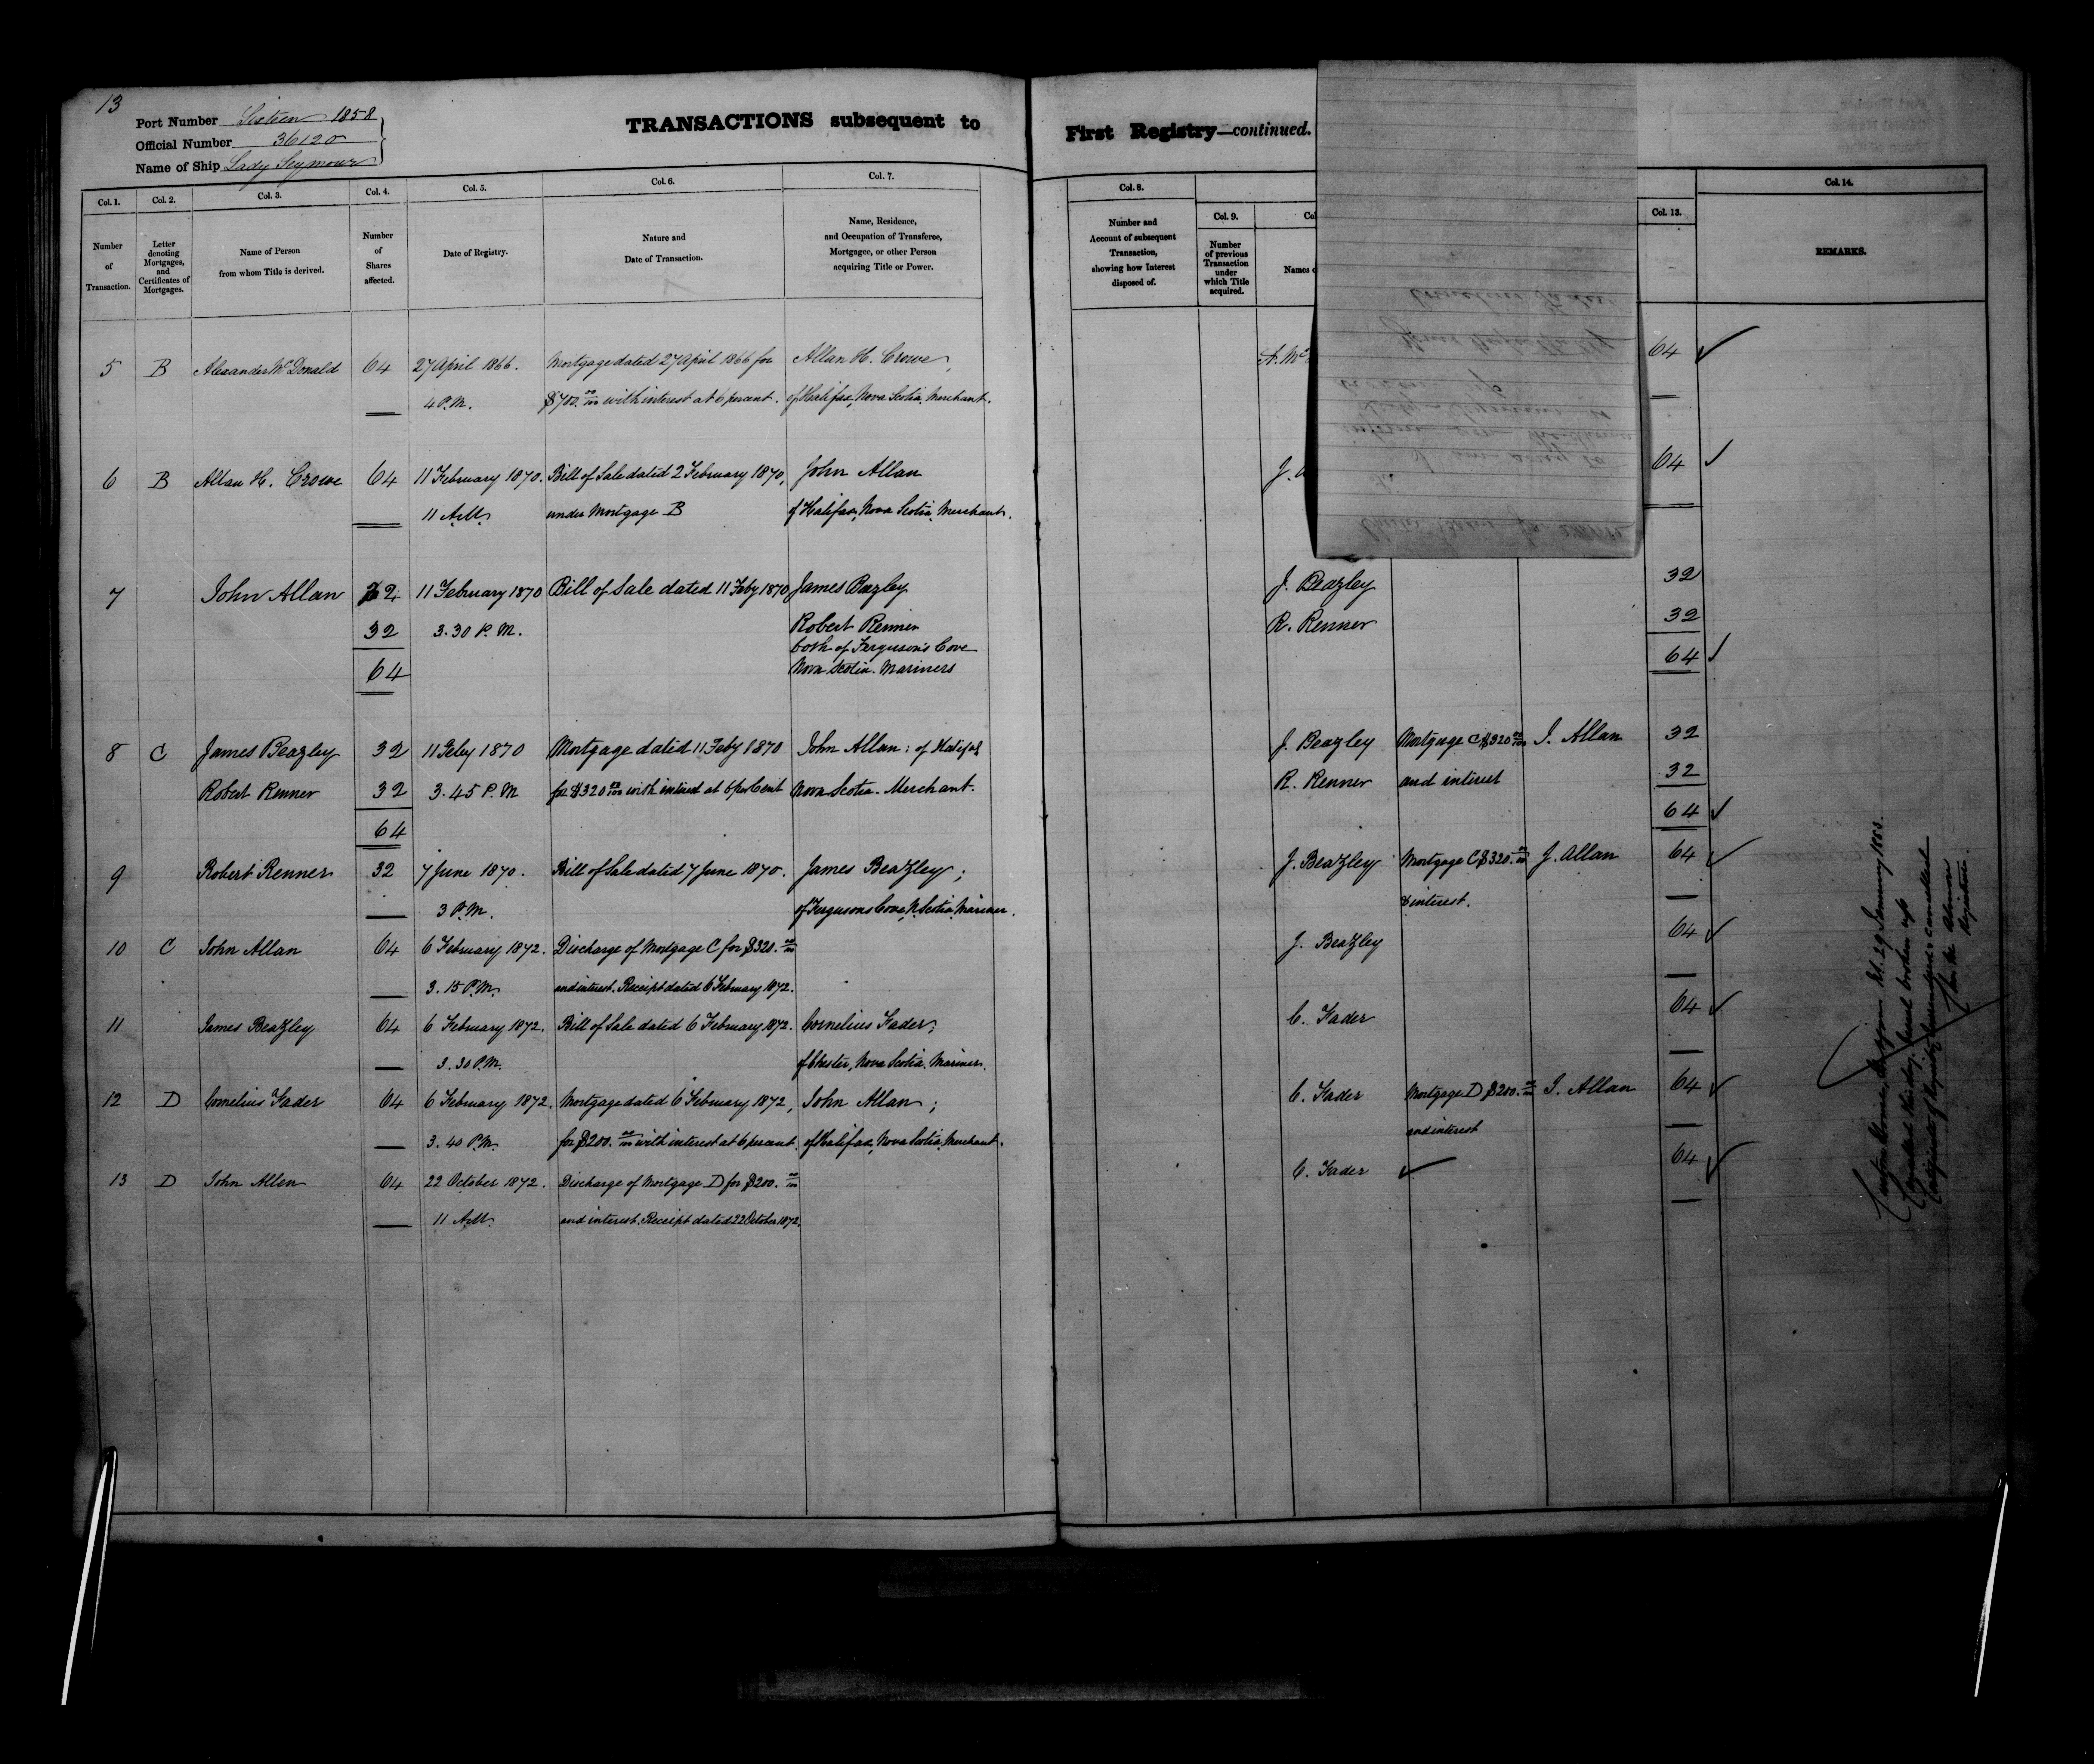 13
Port Number Sixteen 1858
Official Number 36120
Name of Ship Lady Seymour
TRANSACTIONS subsequent to
First Registry—continued.
Col. 1.
Col. 2.
Col. 3.
Col. 4.
Col. 5.
Col. 6.
Col. 7.
Number of Transaction.
Letter denoting Mortgages, and Certificates of Mortgages.
Name of Person from whom Title is derived.
Number of Shares affected.
Date of Registry.
Nature and Date of Transaction.
Name, Residence, and Occupation of Transferee, Mortgagee, or other Person acquiring Title or Power.
5 B Alexander McDonald 64 27 April 1866. Mortgage dated 27 April 1866 for Allan H. Crowe,
4 P.M. $700. 00/100 with interest at 6 percent. of Halifax, Nova Scotia, Merchant.
6 B Allan H. Crowe 64 11 February 1870. Bill of Sale dated 2 February 1870, John Allan
11 A.M. under Mortgage B of Halifax, Nova Scotia, Merchant.
7 John Allan 32 11 February 1870 Bill of Sale dated 11 Feby 1870 James Beazley
32 3.30 P.M. Robert Renner
both of Ferguson's Cove
64 Nova Scotia. Mariners
8 C James Beazley 32 11 Feby 1870 Mortgage dated 11 Feby 1870 John Allan: of Halifax
Robert Renner 32 3.45 P.M for $320 00/100 with interest at 6 per Cent Nova Scotia. Merchant.
64
9 Robert Renner 32 7 June 1870. Bill of Sale dated 7 June 1870. James Beazley;
3 P.M. of Fergusons Cove, N. Scotia, Mariner.
10 C John Allan 64 6 February 1872. Discharge of Mortgage C for $320. 00/100
3.15 P.M. and interest. Receipt dated 6 February 1872.
11 James Beazley 64 6 February 1872. Bill of Sale dated 6 February 1872. Cornelius Fader;
3.30 P.M. of Chester, Nova Scotia. Mariner.
12 D Cornelius Fader 64 6 February 1872. Mortgage dated 6 February 1872, John Allan;
3.40 P.M. for $200. 00/100 with interest at 6 percent. of Halifax, Nova Scotia, Merchant.
13 D John Allan 64 22 October 1872. Discharge of Mortgage D for $200. 00/100
11 A.M. and interest. Receipt dated 22 October 1872.
Col. 8.
Col. 9.
Col. 13.
Col. 14.
Number and Account of subsequent Transaction, showing how Interest disposed of.
Number of previous Transaction under which Title acquired.
Names
REMARKS.
A. Mc 64
J. 64
J. Beazley 32
R. Renner 32
64
J. Beazley Mortgage C $320 00/100 J. Allan 32
R. Renner and interest 32
64
J. Beazley Mortgage C $320. 00/100 J. Allan 64
& interest.
J. Beazley 64
C. Fader 64
C. Fader Mortgage D $200. 00/100 J. Allan 64
and interest
C. Fader 64
29 January 1883.
this day. Vessel broken up
Certificate of Registry cancelled
Registrar